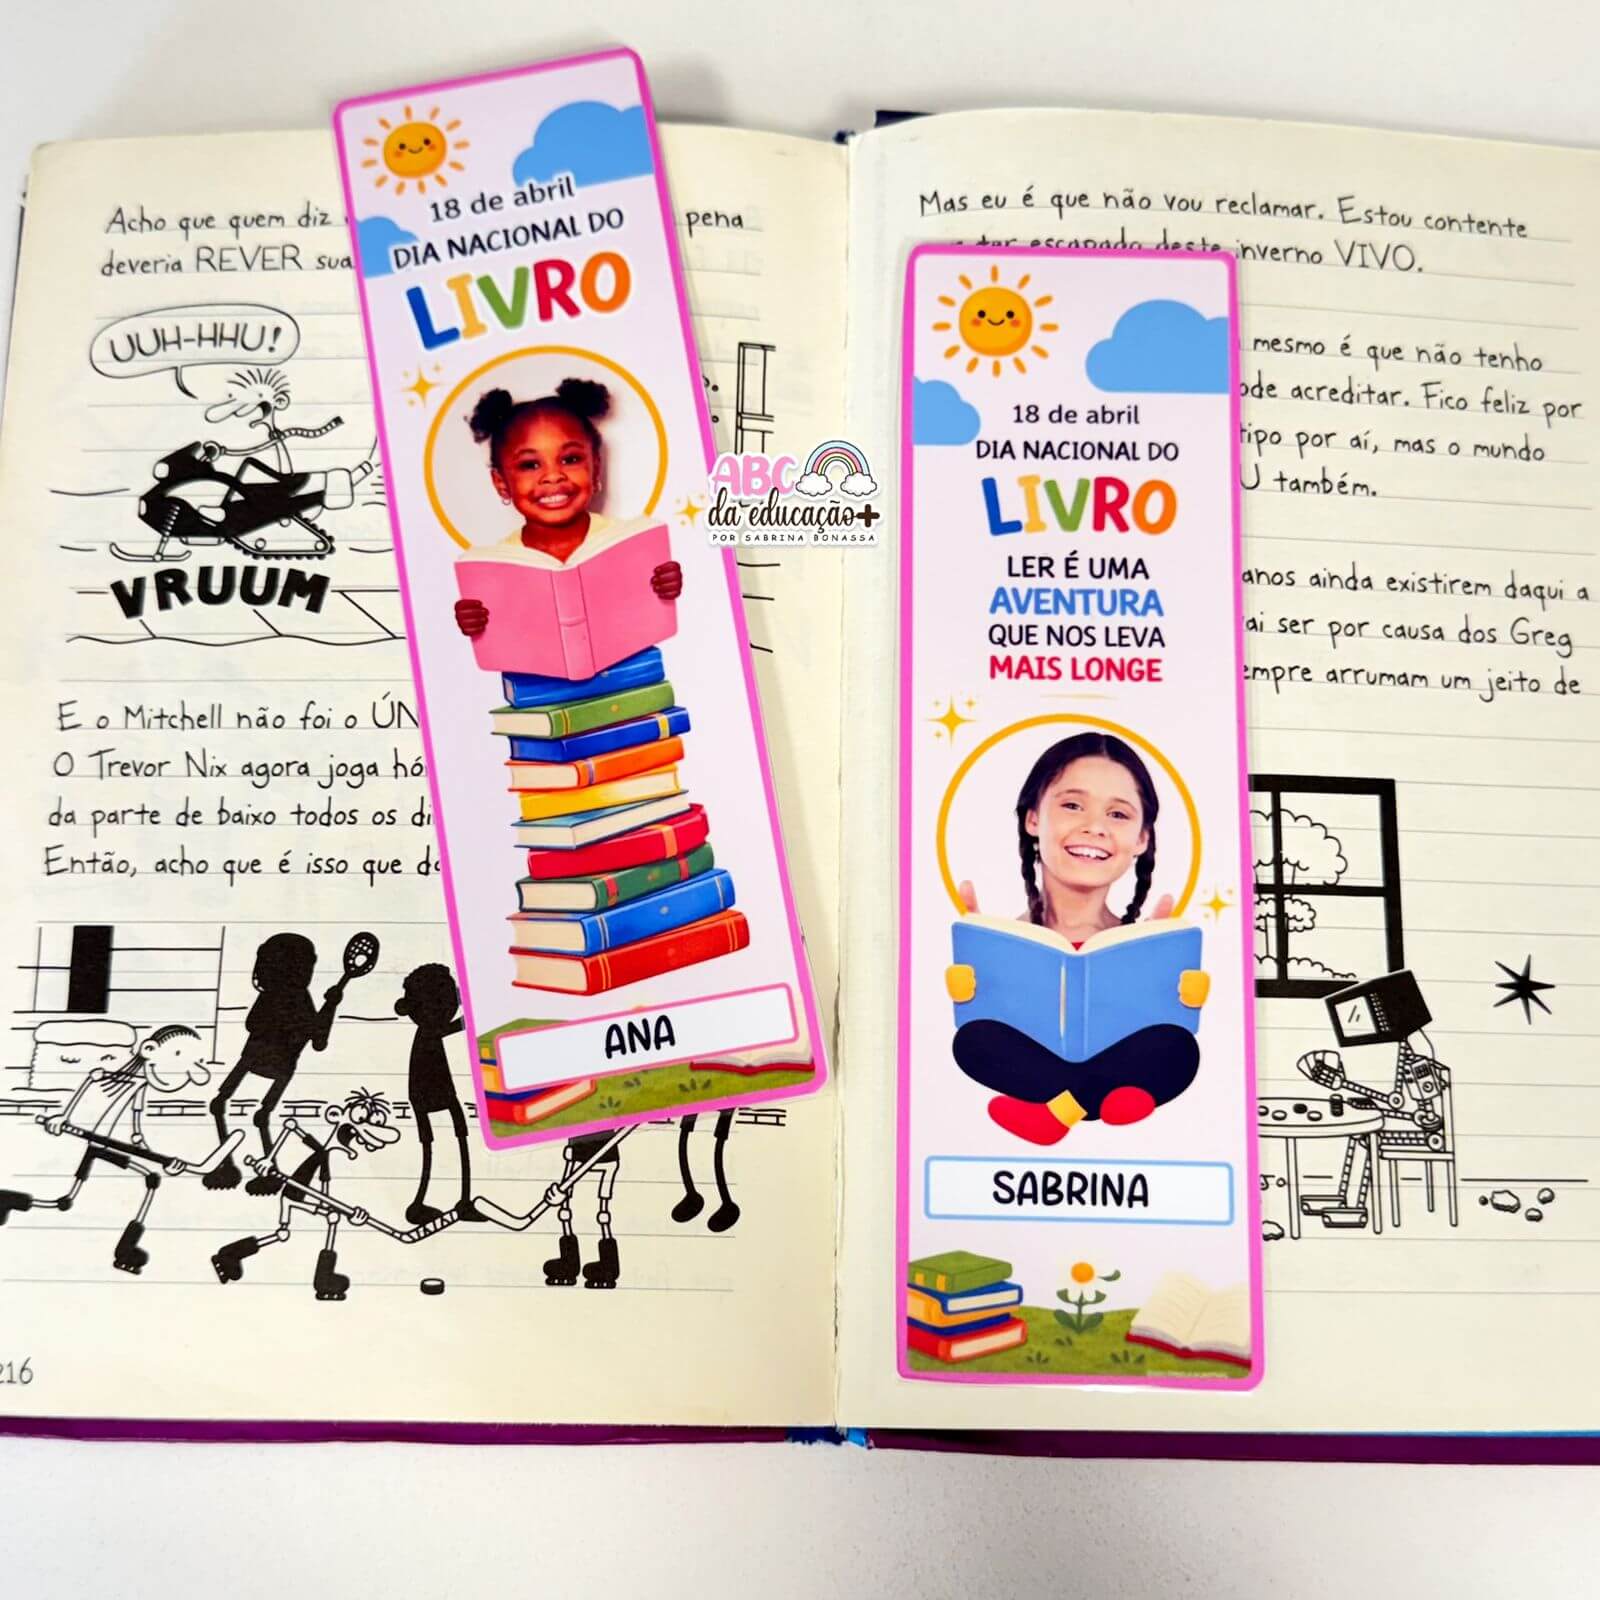 Acho que quem diz
pena
deveria REVER sua
UUH-HHU!
VRUUM
E o Mitchell não foi o ÚN
O Trevor Nix agora joga hó
da parte de baixo todos os di
Então, acho que é isso que
216
18 de abril
DIA NACIONAL DO
LIVRO
ANA
ABC
da educação+
POR SABRINA BONASSA
Mas eu é que não vou reclamar. Estou contente
ter escapado deste inverno VIVO.
mesmo é que não tenho
ode acreditar. Fico feliz por
tipo por aí, mas o mundo
U também.
anos ainda existirem daqui a
ai ser por causa dos Greg
empre arrumam um jeito de
18 de abril
DIA NACIONAL DO
LIVRO
LER É UMA
AVENTURA
QUE NOS LEVA
MAIS LONGE
SABRINA